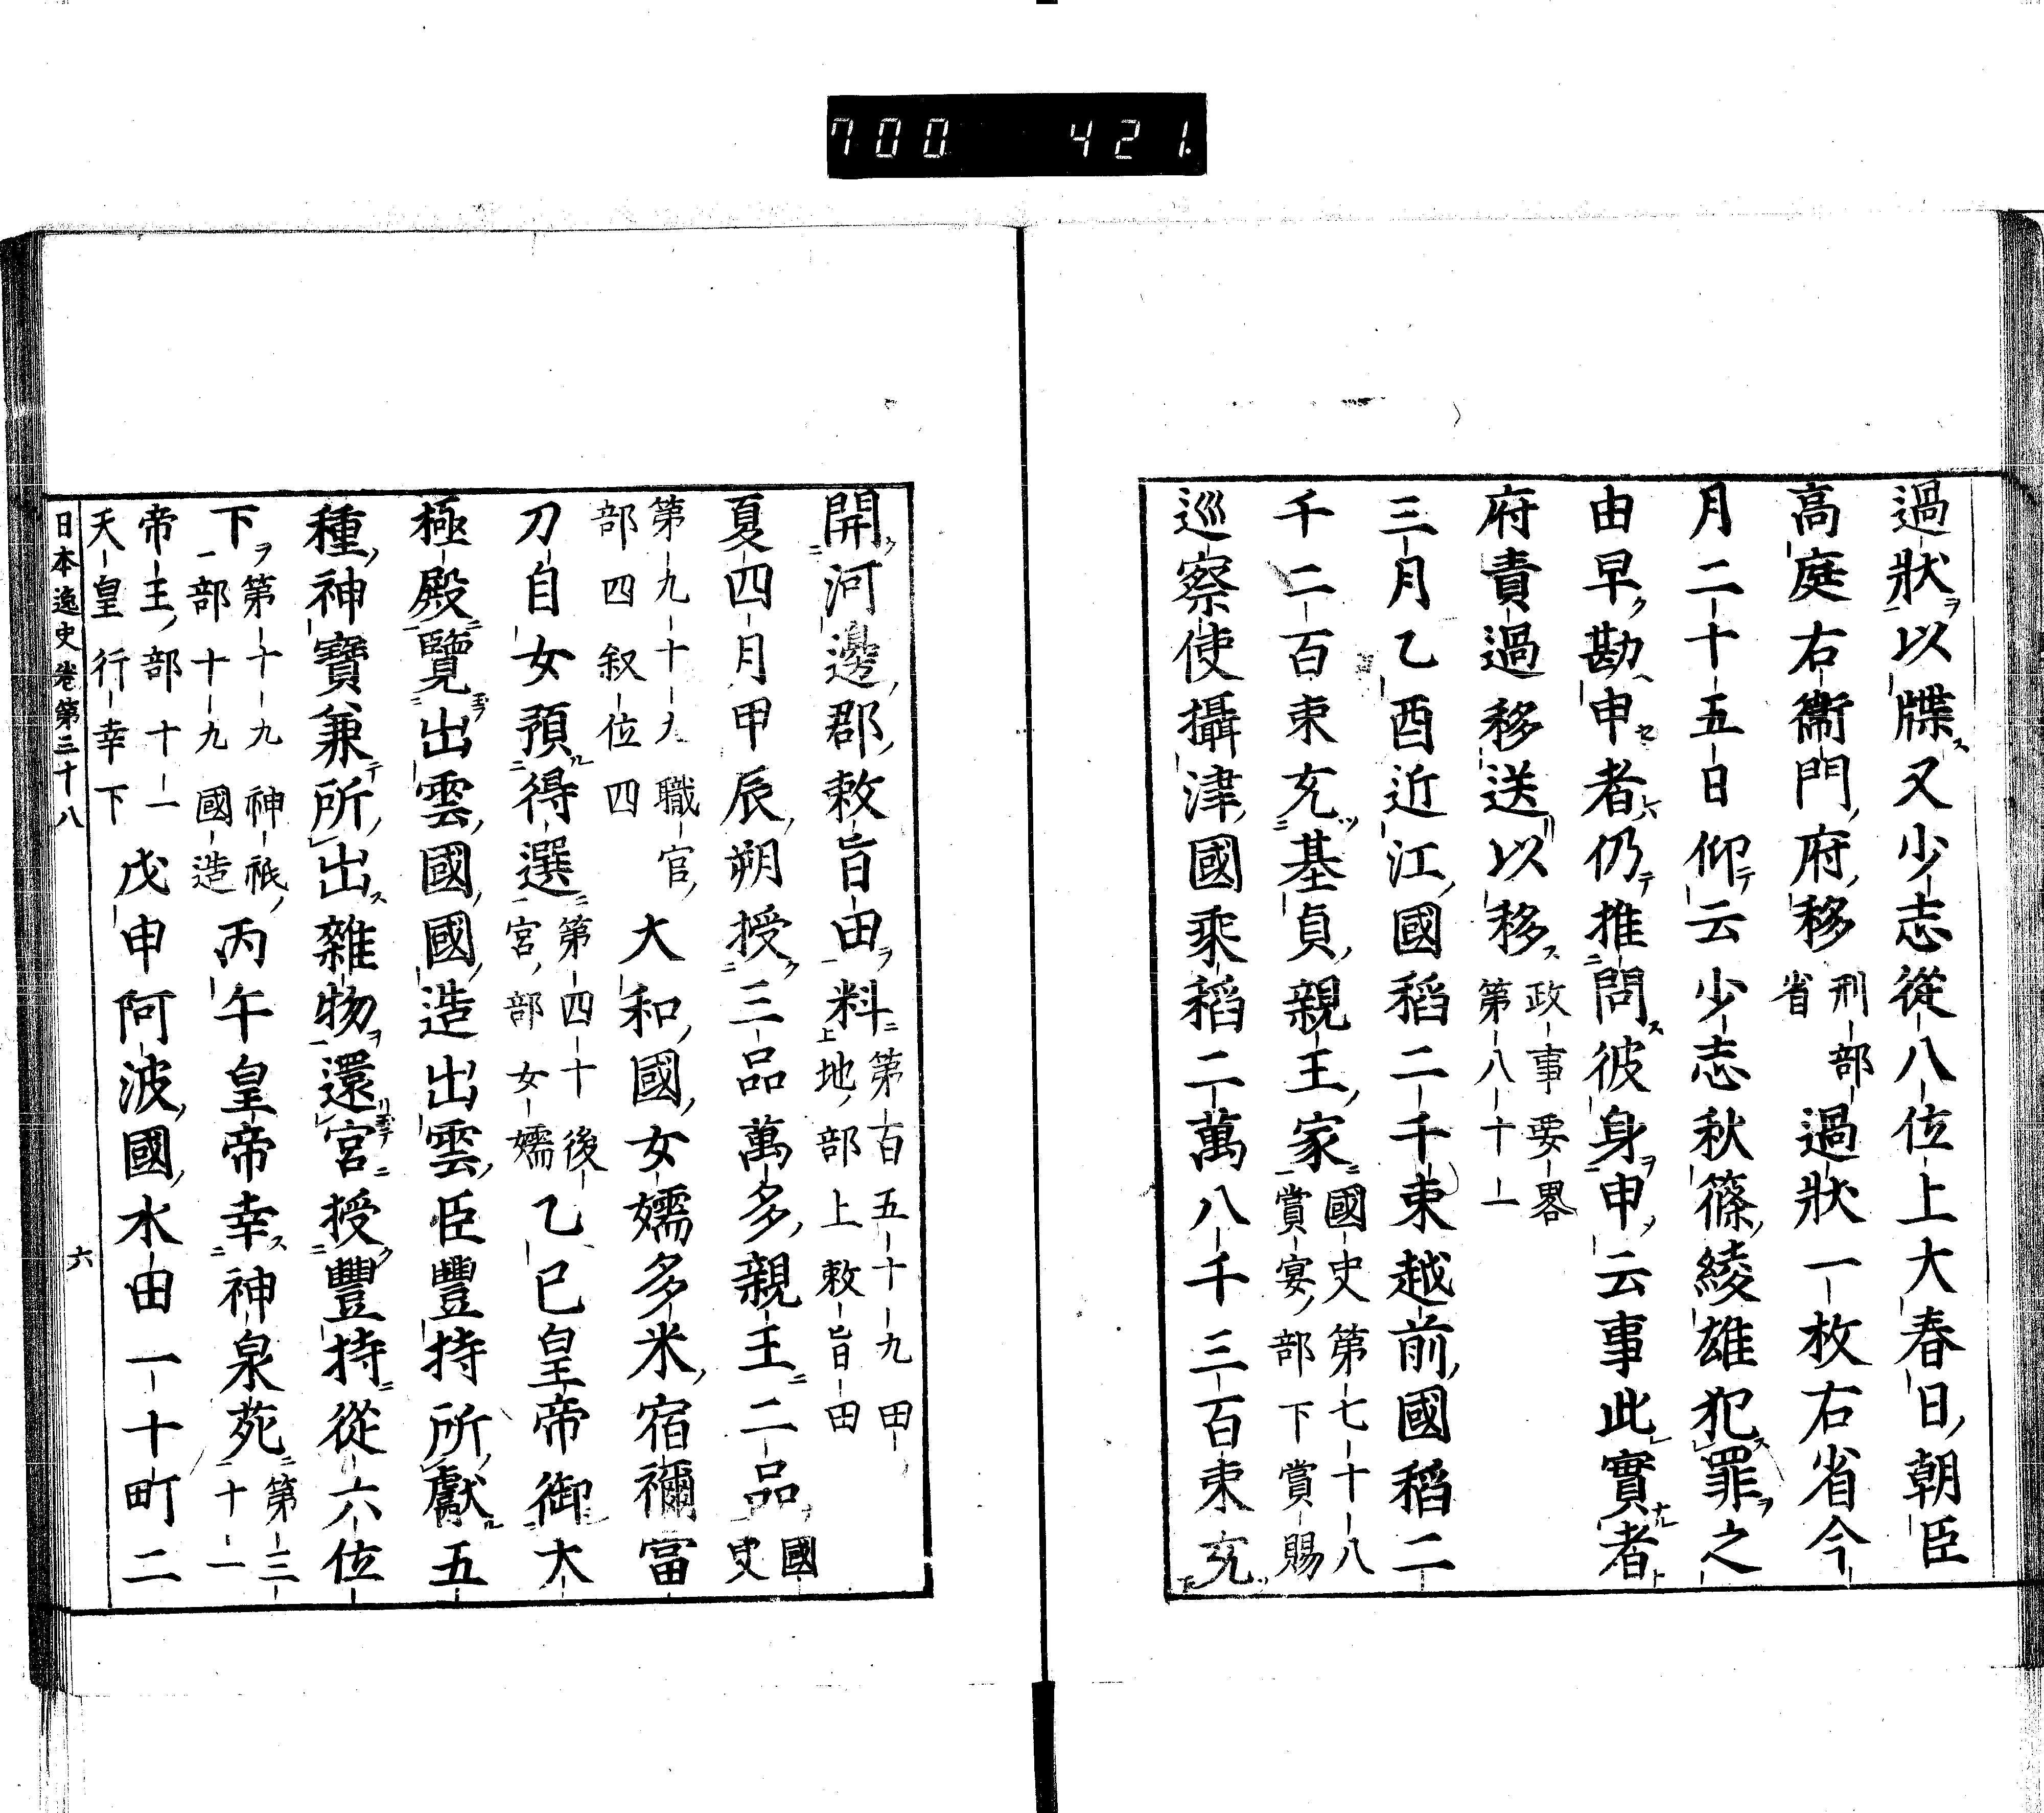 700 421
過狀以牒又少志從八位上大春日朝臣
高庭右衞門府移刑部省過狀一枚右省今
月二十五日仰云少志秋篠綾雄犯罪之
由早勘申者仍推問彼身申云事此實者
府責過移送以移政事要畧第八十一
三月乙酉近江國稻二千束越前國稻二
千二百束充基貞親王家國史第七十八賞宴部下賞賜
巡察使攝津國乘稻二萬八千三百束充
開河邊郡敕旨田料第百五十九田地部上敕旨田
夏四月甲辰朔授三品萬多親王二品國史
第九十九職官部四叙位四大和國女孺多米宿禰富
刀自女預得選第四十後宮部女孺乙巳皇帝御大
極殿覽出雲國國造出雲臣豐持所獻五
種神寶兼所出雜物還宮授豐持從六位
下第十九神祇部十九國造丙午皇帝幸神泉苑第三十一
帝王部十一天皇行幸下戊申阿波國水田一十町二
日本逸史卷第三十八 六